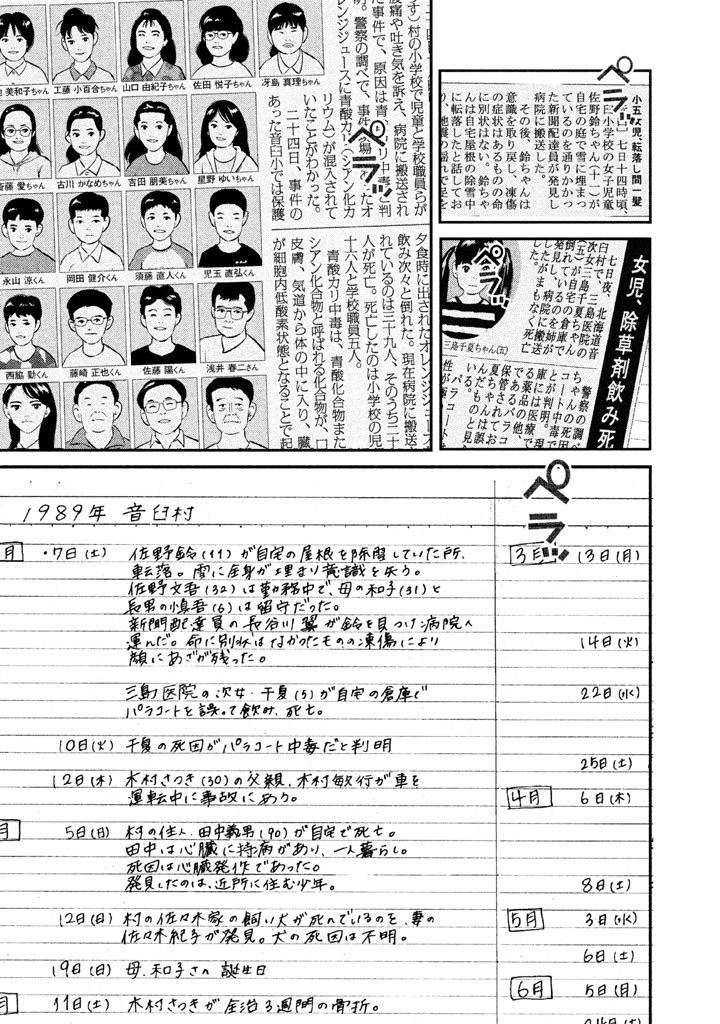 ペラッ
小五女児、転落し間一髪
七日十四時頃、
臼小学校の女子児童
佐野鈴ちゃん(十一)が
自宅の庭で雪に埋まっ
ているのを通りかかっ
た新聞配達員が発見し
病院に搬送した。
その後、鈴ちゃんは
意識を取り戻し、凍傷
の症状はあるものの命
に別状はない。鈴ちゃ
んは自宅屋根の除雪中
に転落したと話してお
ペラッ
す)村の小学校で児童と学校職員らが
腹痛や吐き気を訴え、病院に搬送され
た事件で、原因は青
警察の調べで、事件
レンジジュースに青酸カリ(シアン化カ
リウム)が混入されて
いたことがわかった。
二十四日、事件の
あった音臼小では保護
夕食時に出されたオレンジジュース
飲み次々と倒れた。現在病院に搬送
れているのは三十九人、そのうち二十
人が死亡。死亡したのは小学校の児
十六人と学校職員五人。
青酸カリ中毒は、青酸化合物また
シアン化合物と呼ばれる化合物が、口
皮膚、気道から体の中に入り、臓
が細胞内低酸素状態となることで起
美和子ちゃん
工藤 小百合ちゃん
山口 由紀子ちゃん
佐田 悦子ちゃん
冴島 真理ちゃん
斎藤 愛ちゃん
古川 かなめちゃん
吉田 朋美ちゃん
星野 ゆいちゃん
永山 涼くん
岡田 健介くん
須藤 直人くん
児玉 直弘くん
西脇 勤くん
藤崎 正也くん
佐藤 陽くん
浅井 春二さん
女児、除草剤飲み死
ペラッ
七日夜、北海道音
臼村で、三島医院の
次女三島千夏ちゃん
(五)が自宅の倉庫で
倒れているのを姉が
発見し、病院に搬送
したがまもなく死亡
した。
三島千夏ちゃん(五)
警察の調べ
ちゃんの死因
コート中毒で
とが判明。現
庫には医療で
る薬品の他、
であるパラコ
保管されてお
夏ちゃんは誤
んだものと見
いる。
パラコート
ペラッ
1989年 音臼村
月
・7日(土) 佐野鈴(11)が自宅の屋根を除雪していた所、
転落。雪に全身が埋まり意識を失う。
佐野文吾(32)は勤務中で、母の和子(31)と
長男の慎吾(6)は留守だった。
新聞配達員の長谷川翼が鈴を見つけ病院へ
運んだ。命に別状はなかったものの凍傷により
顔にあざが残った。
三島医院の次女・千夏(5)が自宅の倉庫で
パラコートを誤って飲み、死亡。
10日(火) 千夏の死因がパラコート中毒だと判明
12日(木) 木村さつき(30)の父親、木村敏行が車を
運転中に事故にあう。
月
5日(日) 村の住人、田中義男(90)が自宅で死亡。
田中は心臓に持病があり、一人暮らし。
死因は心臓発作であった。
発見したのは、近所に住む少年。
12日(日) 村の佐々木家の飼い犬が死んでいるのを、妻の
佐々木紀子が発見。犬の死因は不明。
19日(日) 母、和子さんの誕生日
月
11日(土) 木村さつきが全治3週間の骨折。
3月
13日(月)
14日(火)
22日(水)
25日(土)
4月
6日(木)
8日(土)
5月
3日(水)
6日(土)
6月
5日(月)